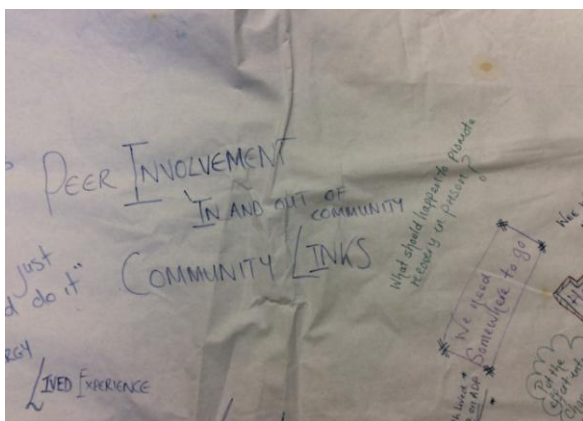 PEER INVOLVEMENT
IN AND OUT OF
COMMUNITY
COMMUNITY LINKS
just
do it"
RGY
LIVED EXPERIENCE
What should happen to promote
recovery in prison?
We need
Somewhere to go
lived
on ADP
out of the